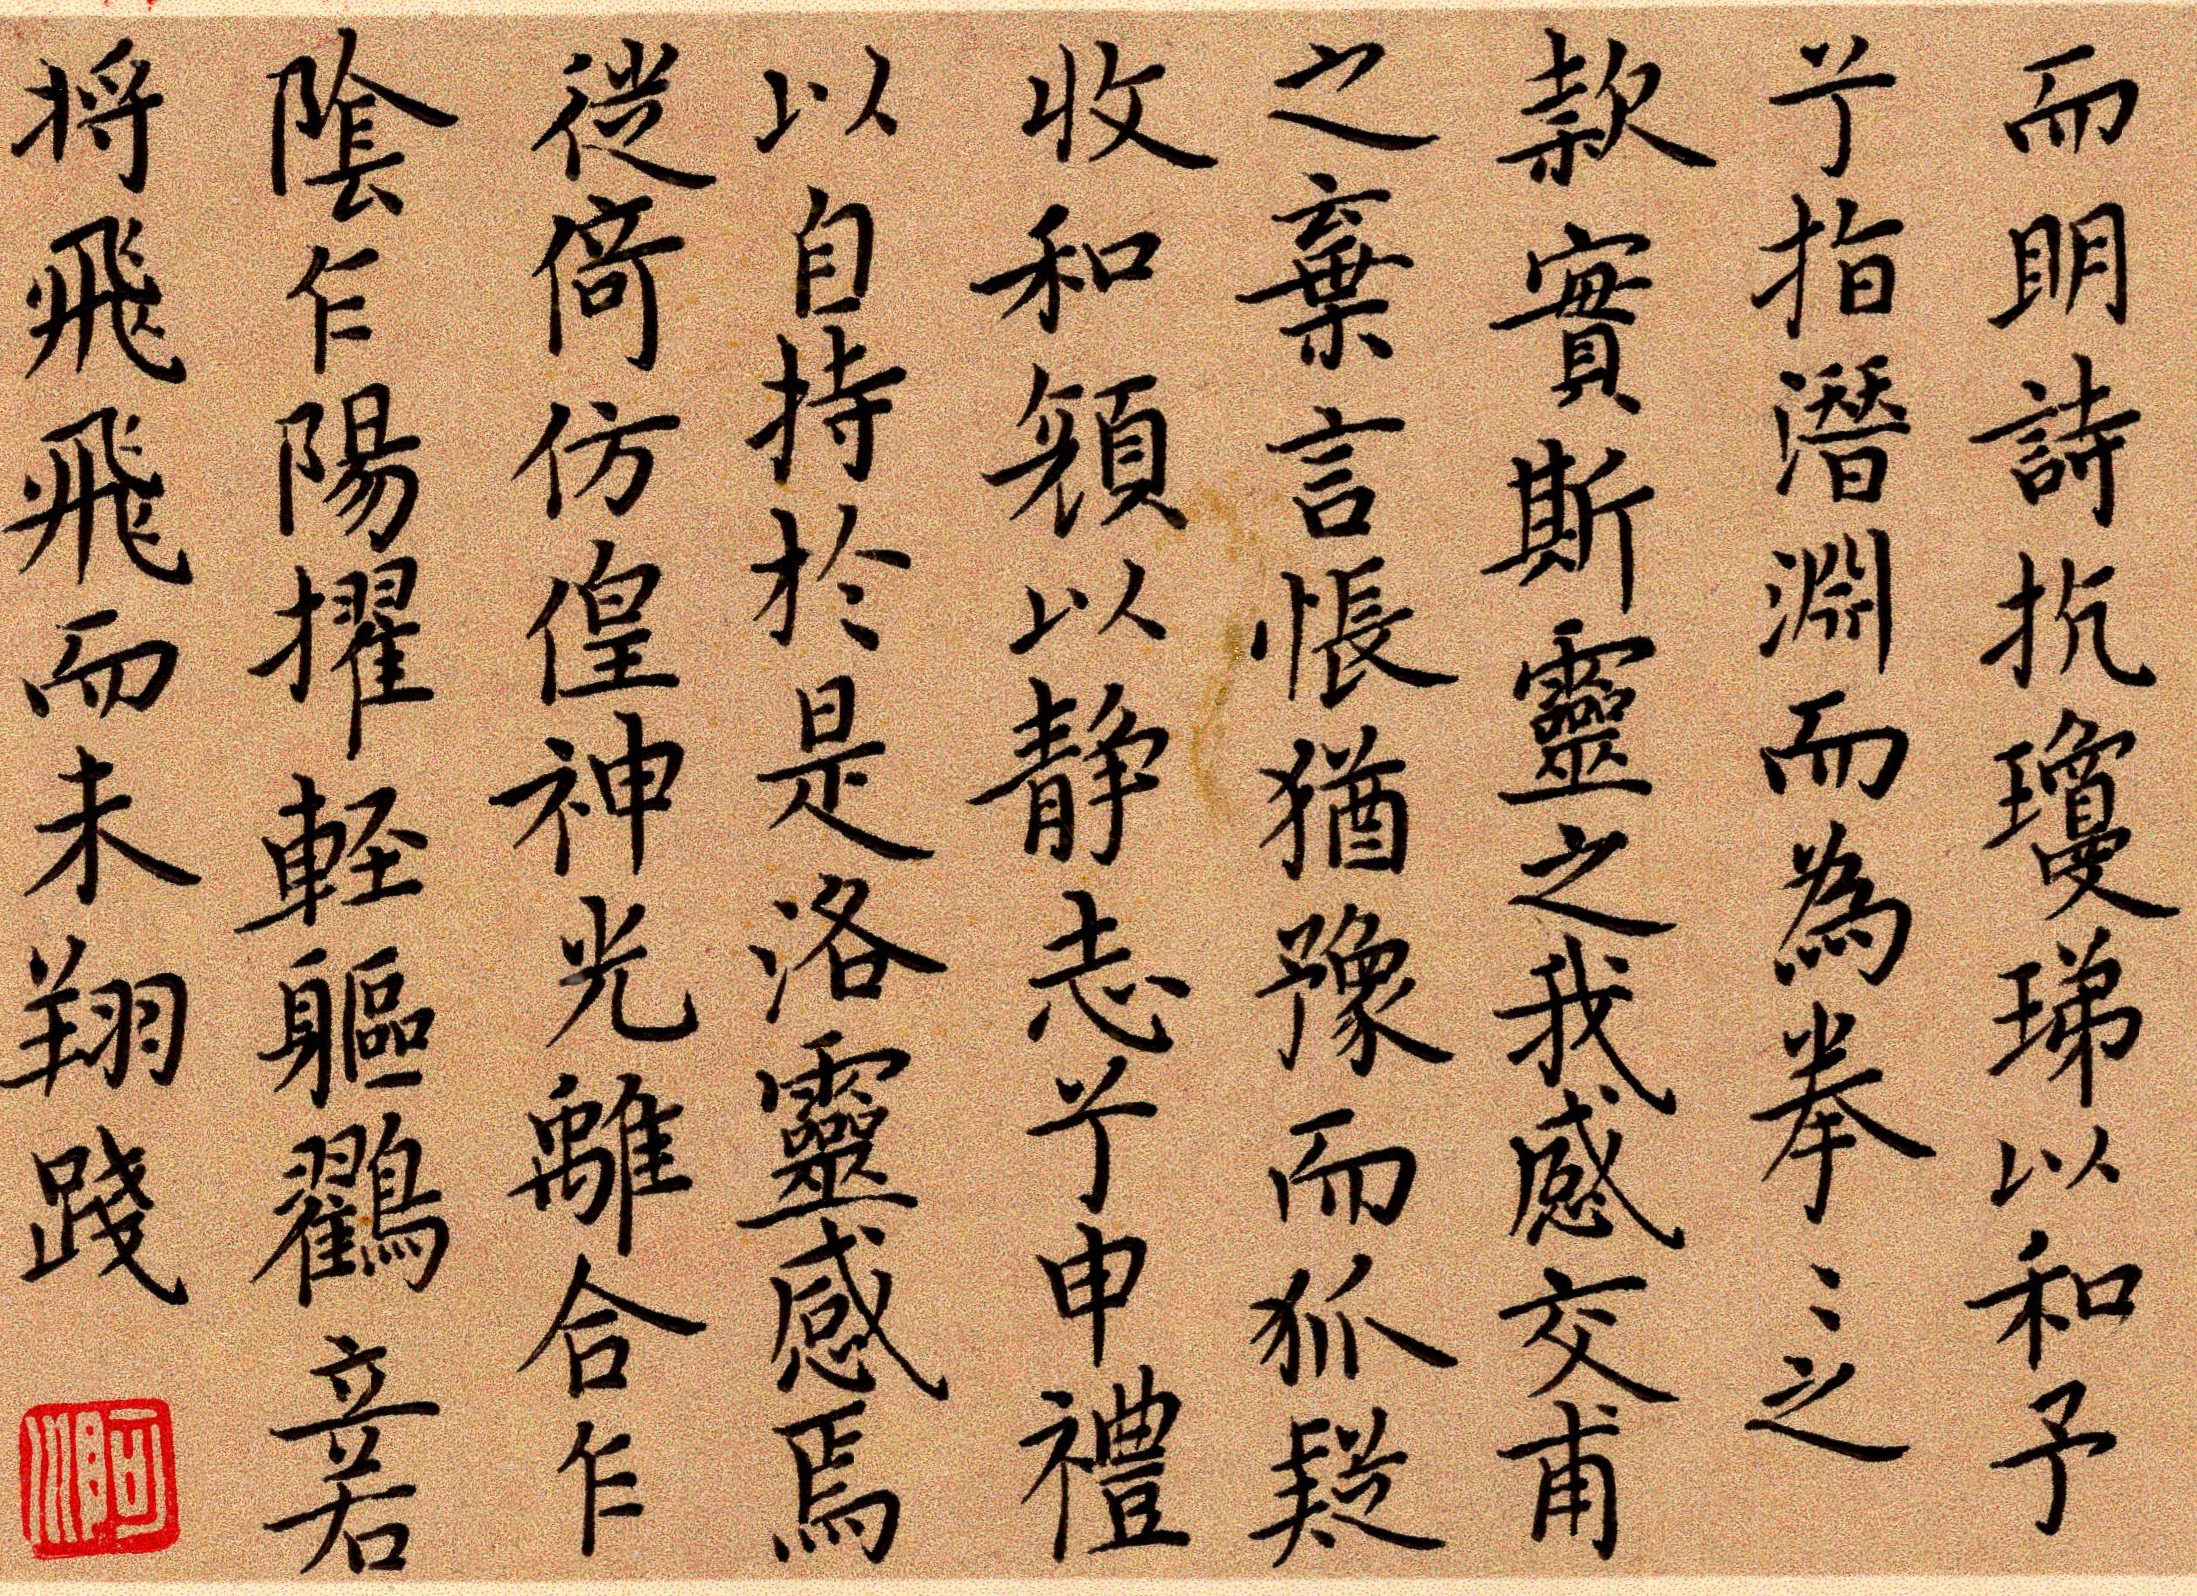 而明詩抗瓊珶以和予
兮指潛淵而為期拳〻之
款實斯靈之我感交甫
之棄言悵猶豫而狐疑
收和顏以靜志兮申禮
以自持於是洛靈感焉
徙倚仿偟神光離合乍
陰乍陽擢輕軀鶴立若
將飛飛而未翔踐